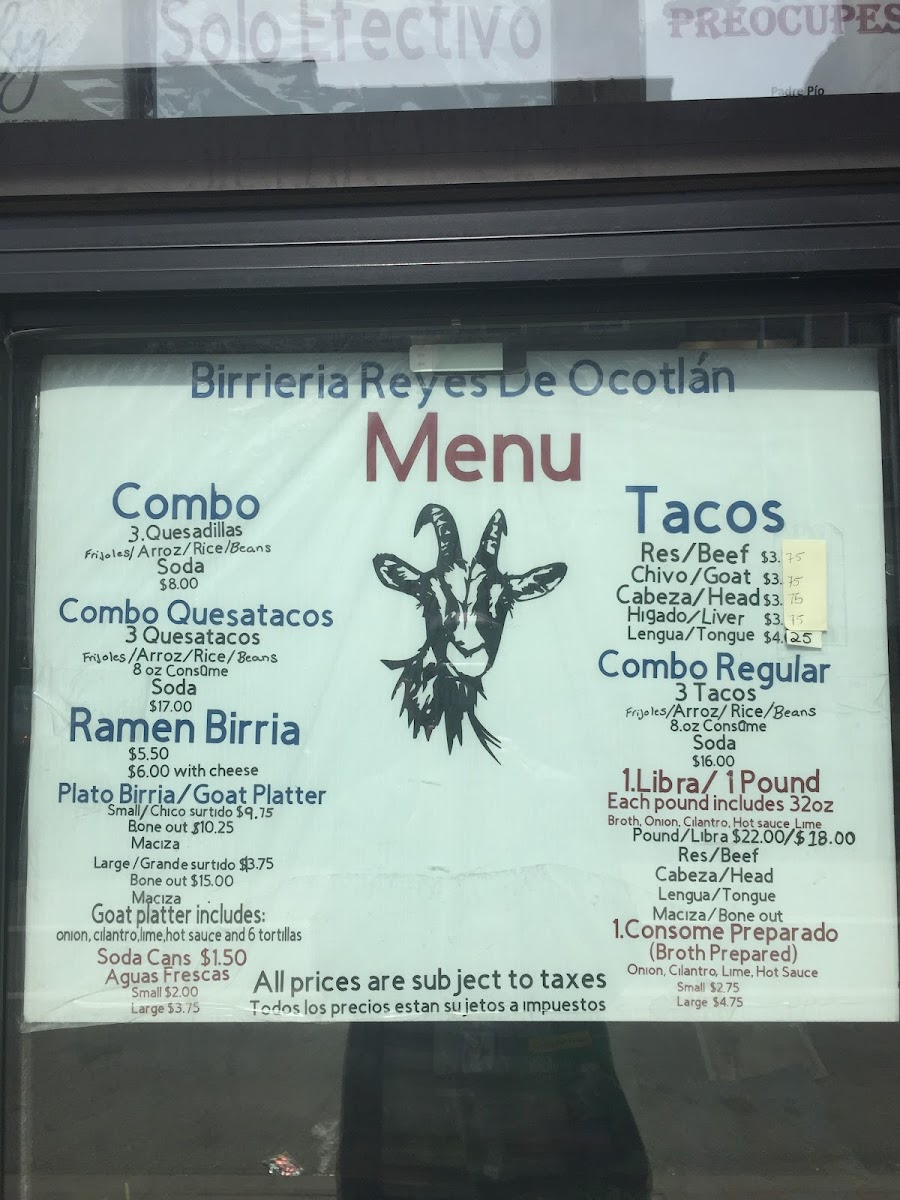 Solo Efectivo
PREOCUPES
Padre Pío
Birrieria Reyes De Ocotlán
Menu
Combo
3.Quesadillas
Frijoles/Arroz/Rice/Beans
Soda
$8.00
Combo Quesatacos
3 Quesatacos
Frijoles/Arroz/Rice/Beans
8 oz Consume
Soda
$17.00
Ramen Birria
$5.50
$6.00 with cheese
Plato Birria/Goat Platter
Small/Chico surtido $9.75
Bone out $10.25
Maciza
Large/Grande surtido $13.75
Bone out $15.00
Maciza
Goat platter includes:
onion,cilantro,lime,hot sauce and 6 tortillas
Soda Cans $1.50
Aguas Frescas
Small $2.00
Large $3.75
Tacos
Res/Beef $3.75
Chivo/Goat $3.75
Cabeza/Head $3.75
Higado/Liver $3.75
Lengua/Tongue $4.25
Combo Regular
3 Tacos
Frijoles/Arroz/Rice/Beans
8.oz Consume
Soda
$16.00
1.Libra/ 1 Pound
Each pound includes 32oz
Broth, Onion, Cilantro, Hot sauce Lime
Pound/Libra $22.00/$18.00
Res/Beef
Cabeza/Head
Lengua/Tongue
Maciza/Bone out
1.Consome Preparado
(Broth Prepared)
Onion, Cilantro, Lime, Hot Sauce
Small $2.75
Large $4.75
All prices are subject to taxes
Todos los precios estan sujetos a impuestos